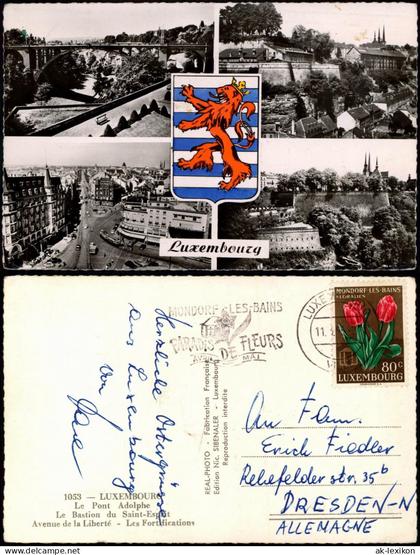 Luxembourg
MONDORF-LES-BAINS
PARADIS
DE FLEURS
MAI
LUXE
11.
MONDORF-LES-BAINS
FLORALIES
80c
LUXEMBOURG
Herzliche Ostergrüsse
aus Luxembourg
von
REAL-PHOTO - Fabrication Française
Edition Nic. SIBENALER - Luxembourg
Reproduction interdite
1053 — LUXEMBOURG
Le Pont Adolphe
Le Bastion du Saint-Esprit
Avenue de la Liberté - Les Fortifications
An Fam.
Erich Fiedler
Rehefelder str. 35b
DRESDEN-N
ALLEMAGNE
ak-lexikon.com